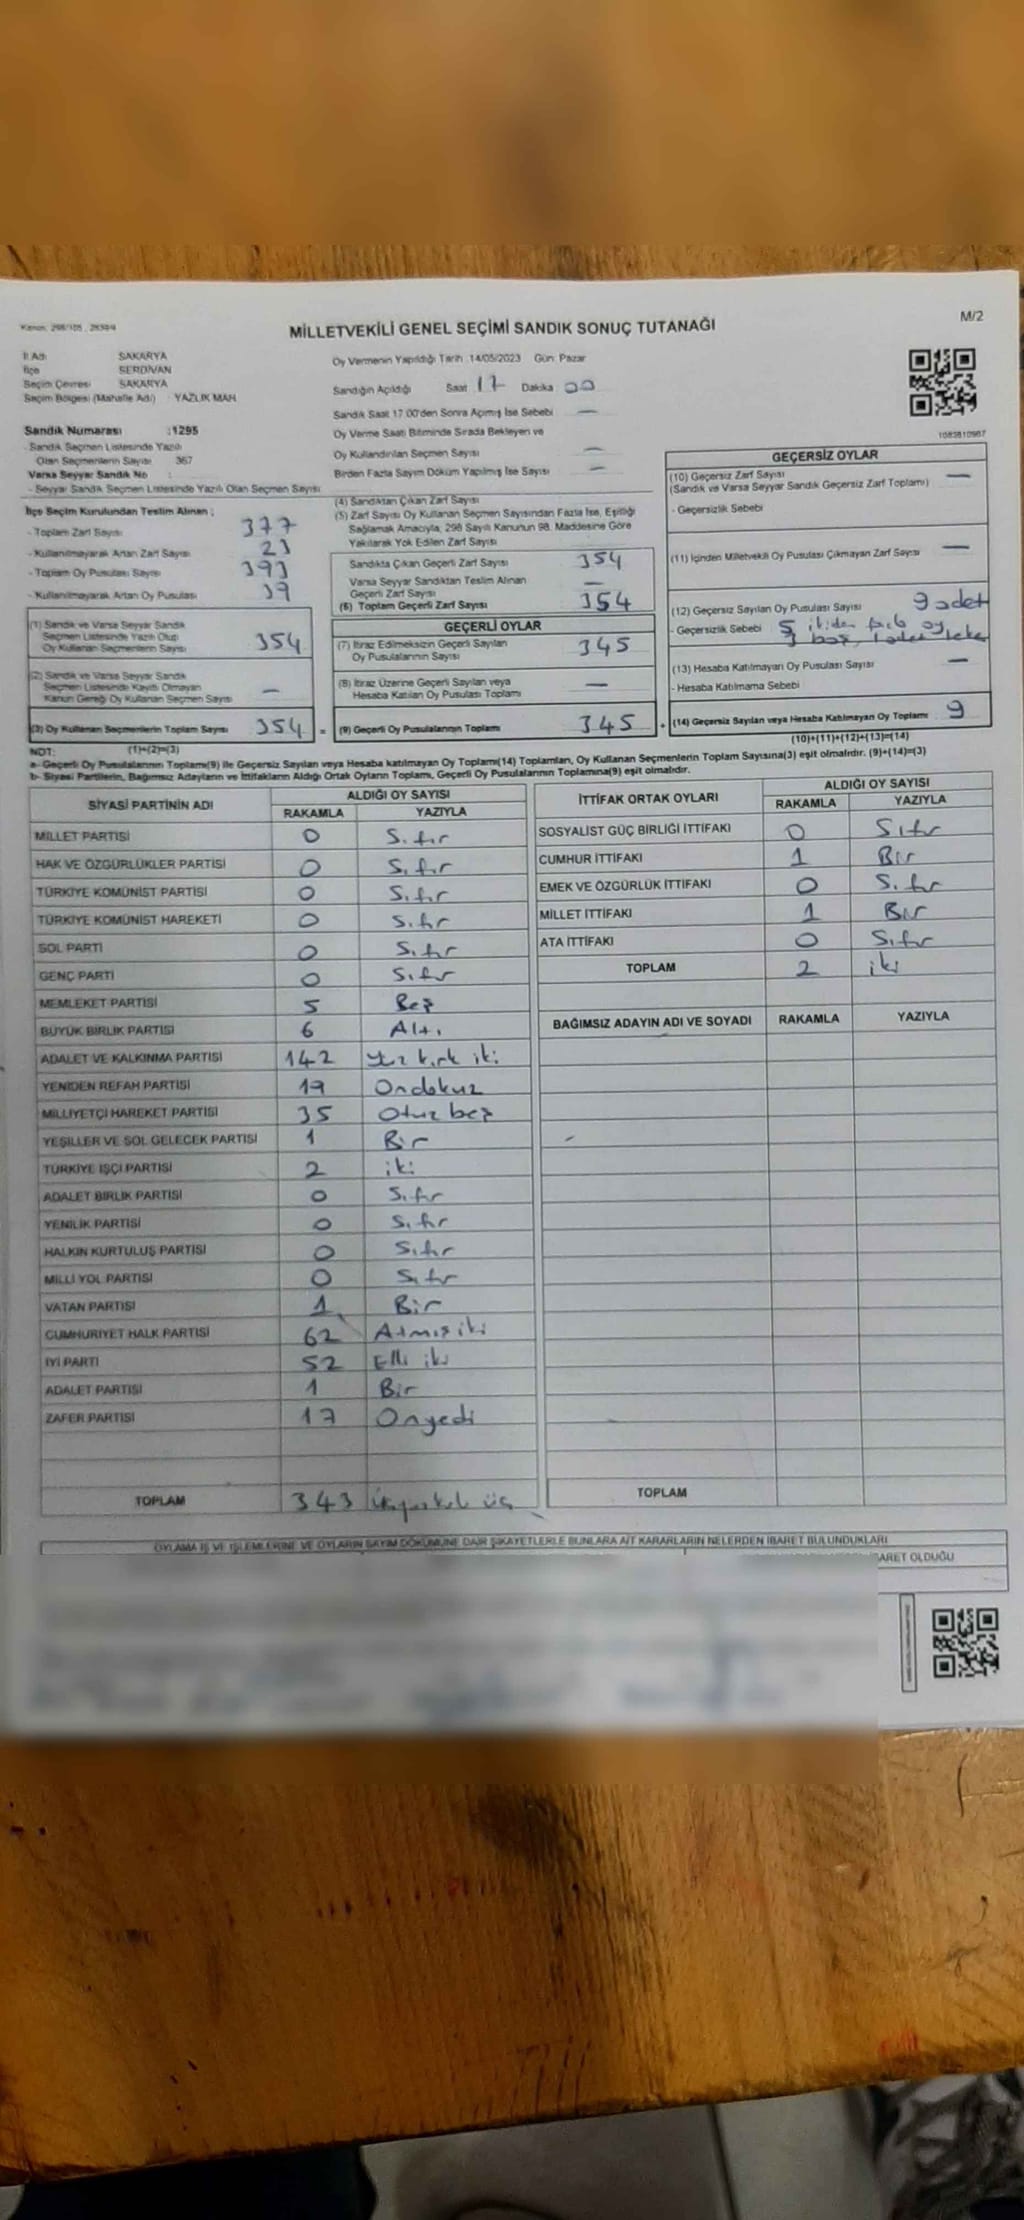 Kanun: 298/105 , 2839/4
MİLLETVEKİLİ GENEL SEÇİMİ SANDIK SONUÇ TUTANAĞI
M/2
İl Adı SAKARYA
İlçe SERDİVAN
Seçim Çevresi SAKARYA
Seçim Bölgesi (Mahalle Adı) YAZLIK MAH.
Oy Vermenin Yapıldığı Tarih :14/05/2023 Gün: Pazar
Sandığın Açıldığı Saat 17 Dakika 00
Sandık Saat 17.00'den Sonra Açılmış İse Sebebi —
Oy Verme Saati Bitiminde Sırada Bekleyen ve
Oy Kullandırılan Seçmen Sayısı —
Birden Fazla Sayım Döküm Yapılmış İse Sayısı —
Sandık Numarası :1295
- Sandık Seçmen Listesinde Yazılı
Olan Seçmenlerin Sayısı 367
Varsa Seyyar Sandık No :
- Seyyar Sandık Seçmen Listesinde Yazılı Olan Seçmen Sayısı
İlçe Seçim Kurulundan Teslim Alınan ;
- Toplam Zarf Sayısı 377
- Kullanılmayarak Artan Zarf Sayısı 23
- Toplam Oy Pusulası Sayısı 393
- Kullanılmayarak Artan Oy Pusulası 39
(1) Sandık ve Varsa Seyyar Sandık
Seçmen Listesinde Yazılı Olup
Oy Kullanan Seçmenlerin Sayısı 354
(2) Sandık ve Varsa Seyyar Sandık
Seçmen Listesinde Kayıtlı Olmayan
Kanun Gereği Oy Kullanan Seçmen Sayısı —
(3) Oy Kullanan Seçmenlerin Toplam Sayısı 354 =
(4) Sandıktan Çıkan Zarf Sayısı
(5) Zarf Sayısı Oy Kullanan Seçmen Sayısından Fazla İse, Eşitliği
Sağlamak Amacıyla, 298 Sayılı Kanunun 98. Maddesine Göre
Yakılarak Yok Edilen Zarf Sayısı
Sandıkta Çıkan Geçerli Zarf Sayısı 354
Varsa Seyyar Sandıktan Teslim Alınan
Geçerli Zarf Sayısı —
(6) Toplam Geçerli Zarf Sayısı 354
GEÇERLİ OYLAR
(7) İtiraz Edilmeksizin Geçerli Sayılan
Oy Pusulalarının Sayısı 345
(8) İtiraz Üzerine Geçerli Sayılan veya
Hesaba Katılan Oy Pusulası Toplamı —
(9) Geçerli Oy Pusulalarının Toplamı 345 +
1083810987
GEÇERSİZ OYLAR
(10) Geçersiz Zarf Sayısı —
(Sandık ve Varsa Seyyar Sandık Geçersiz Zarf Toplamı)
- Geçersizlik Sebebi
(11) İçinden Milletvekili Oy Pusulası Çıkmayan Zarf Sayısı —
(12) Geçersiz Sayılan Oy Pusulası Sayısı 9 adet
- Geçersizlik Sebebi 5 ikiden fazla oy
3 boş, 1 adet leke
(13) Hesaba Katılmayan Oy Pusulası Sayısı —
- Hesaba Katılmama Sebebi
(14) Geçersiz Sayılan veya Hesaba Katılmayan Oy Toplamı 9
(10)+(11)+(12)+(13)=(14)
NOT: (1)+(2)=(3)
a- Geçerli Oy Pusulalarının Toplamı(9) ile Geçersiz Sayılan veya Hesaba katılmayan Oy Toplamı(14) Toplamları, Oy Kullanan Seçmenlerin Toplam Sayısına(3) eşit olmalıdır. (9)+(14)=(3)
b- Siyasi Partilerin, Bağımsız Adayların ve İttifakların Aldığı Ortak Oyların Toplamı, Geçerli Oy Pusulalarının Toplamına(9) eşit olmalıdır.
SİYASİ PARTİNİN ADI ALDIĞI OY SAYISI
RAKAMLA YAZIYLA
MİLLET PARTİSİ 0 Sıfır
HAK VE ÖZGÜRLÜKLER PARTİSİ 0 Sıfır
TÜRKİYE KOMÜNİST PARTİSİ 0 Sıfır
TÜRKİYE KOMÜNİST HAREKETİ 0 Sıfır
SOL PARTİ 0 Sıfır
GENÇ PARTİ 0 Sıfır
MEMLEKET PARTİSİ 5 Beş
BÜYÜK BİRLİK PARTİSİ 6 Altı
ADALET VE KALKINMA PARTİSİ 142 Yüz kırk iki
YENİDEN REFAH PARTİSİ 19 Ondokuz
MİLLİYETÇİ HAREKET PARTİSİ 35 Otuz beş
YEŞİLLER VE SOL GELECEK PARTİSİ 1 Bir
TÜRKİYE İŞÇİ PARTİSİ 2 iki
ADALET BİRLİK PARTİSİ 0 Sıfır
YENİLİK PARTİSİ 0 Sıfır
HALKIN KURTULUŞ PARTİSİ 0 Sıfır
MİLLİ YOL PARTİSİ 0 Sıfır
VATAN PARTİSİ 1 Bir
CUMHURİYET HALK PARTİSİ 62 Atmış iki
İYİ PARTİ 52 Elli iki
ADALET PARTİSİ 1 Bir
ZAFER PARTİSİ 17 Onyedi
TOPLAM 343
İTTİFAK ORTAK OYLARI ALDIĞI OY SAYISI
RAKAMLA YAZIYLA
SOSYALİST GÜÇ BİRLİĞİ İTTİFAKI 0 Sıfır
CUMHUR İTTİFAKI 1 Bir
EMEK VE ÖZGÜRLÜK İTTİFAKI 0 Sıfır
MİLLET İTTİFAKI 1 Bir
ATA İTTİFAKI 0 Sıfır
TOPLAM 2 iki
BAĞIMSIZ ADAYIN ADI VE SOYADI RAKAMLA YAZIYLA
TOPLAM
OYLAMA İŞ VE İŞLEMLERİNE VE OYLARIN SAYIM DÖKÜMÜNE DAİR ŞİKAYETLERLE BUNLARA AİT KARARLARIN NELERDEN İBARET BULUNDUKLARI
BARET OLDUĞU